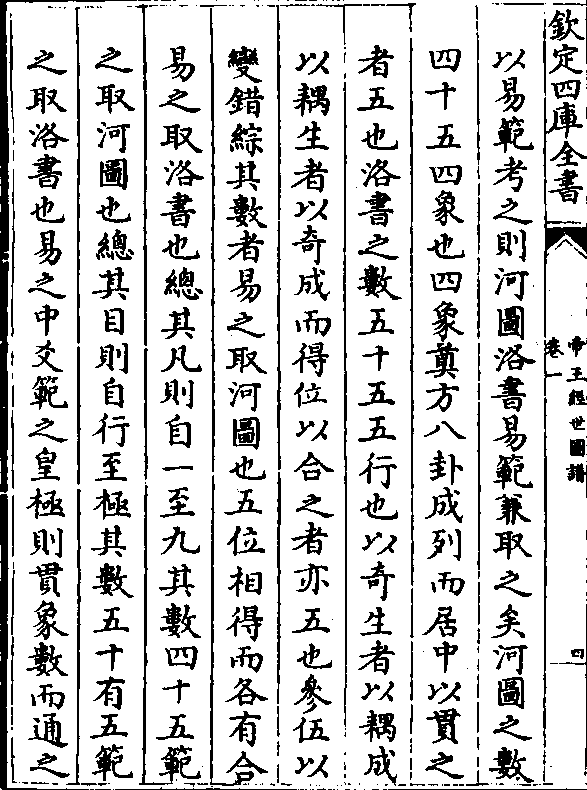 欽定四庫全書
帝王經世圖譜
卷一
四
以易範考之則河圖洛書易範兼取之矣河圖之數
四十五四象也四象奠方八卦成列而居中以貫之
者五也洛書之數五十五五行也以奇生者以耦成
以耦生者以奇成而得位以合之者亦五也參伍以
變錯綜其數者易之取河圖也五位相得而各有合
易之取洛書也總其凡則自一至九其數四十五範
之取河圖也總其目則自行至極其數五十有五範
之取洛書也易之中爻範之皇極則貫象數而通之